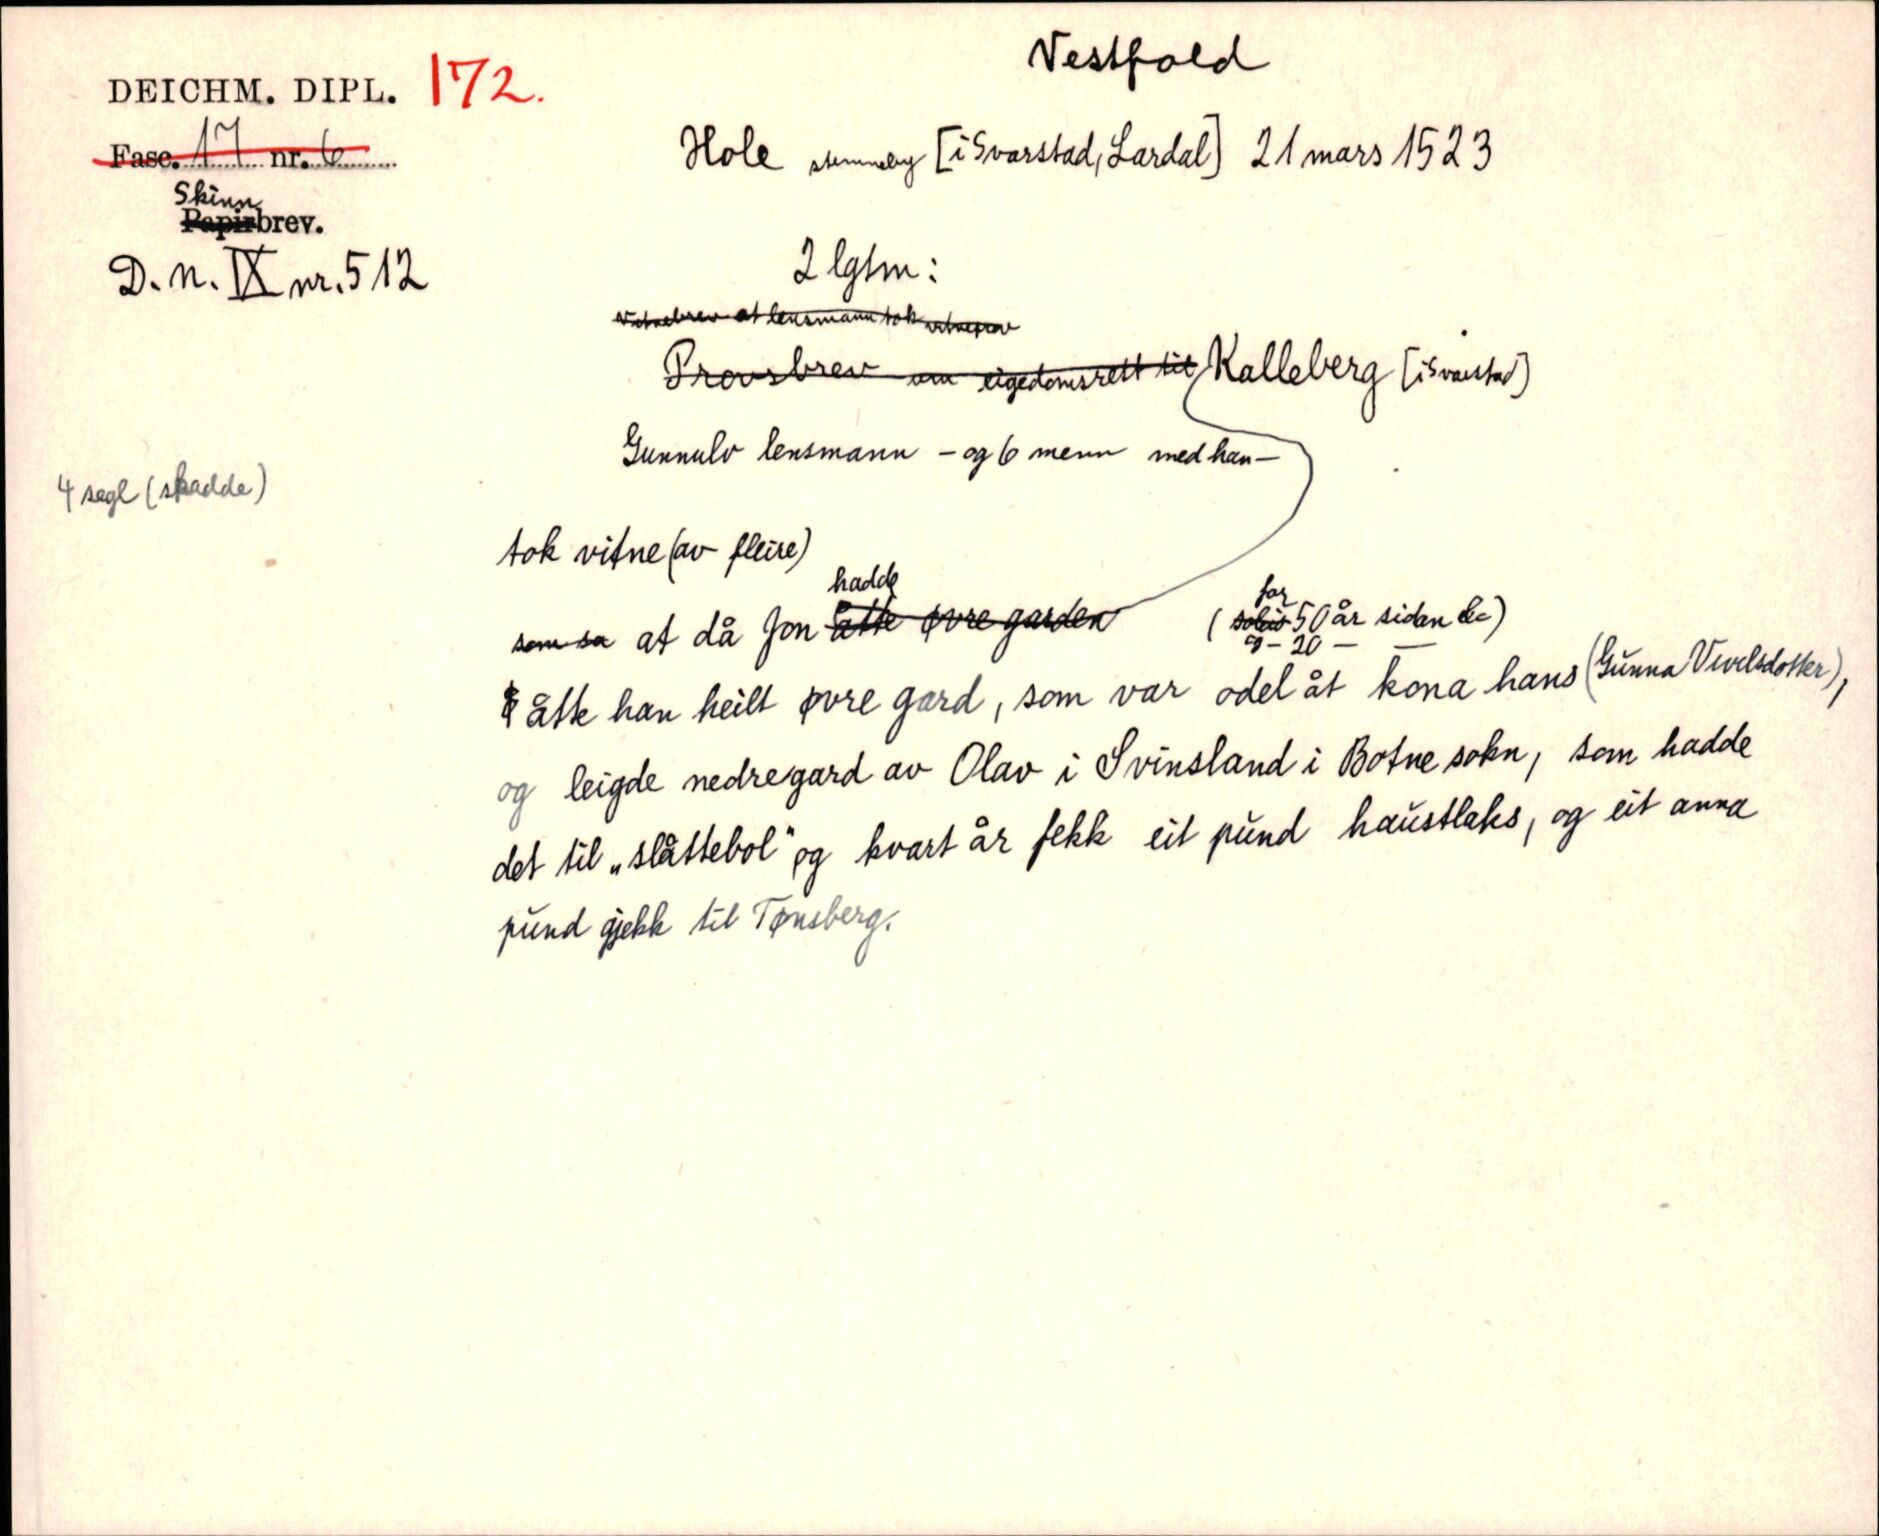 Vestfold
DEICHM. DIPL. 172.
Fasc. 17 nr. 6
Hole stemneby [i Svarstad, Lardal] 21 mars 1523
Skinn
Papirbrev.
D. N. IX nr. 512
2 lgtm:
Vitnebrev at lensmann tok vitneprov
Provsbrev um eigedomsrett til Kalleberg [i Svarstad]
Gunnulv lensmann - og 6 menn med han -
4 segl (skadde)
tok vitne (av fleire)
hadde
for
som sa at då Jon åtte øvre garden ( 50 år siden )
og - 20 - -
åtte han heilt øvre gard, som var odel åt kona hans (Gunna Vivilsdotter),
og leigde nedregard av Olav i Svinsland i Botne sokn, som hadde
det til „slåttebol" og kvart år fekk eit pund haustlaks, og eit anna
pund gjekk til Tønsberg.